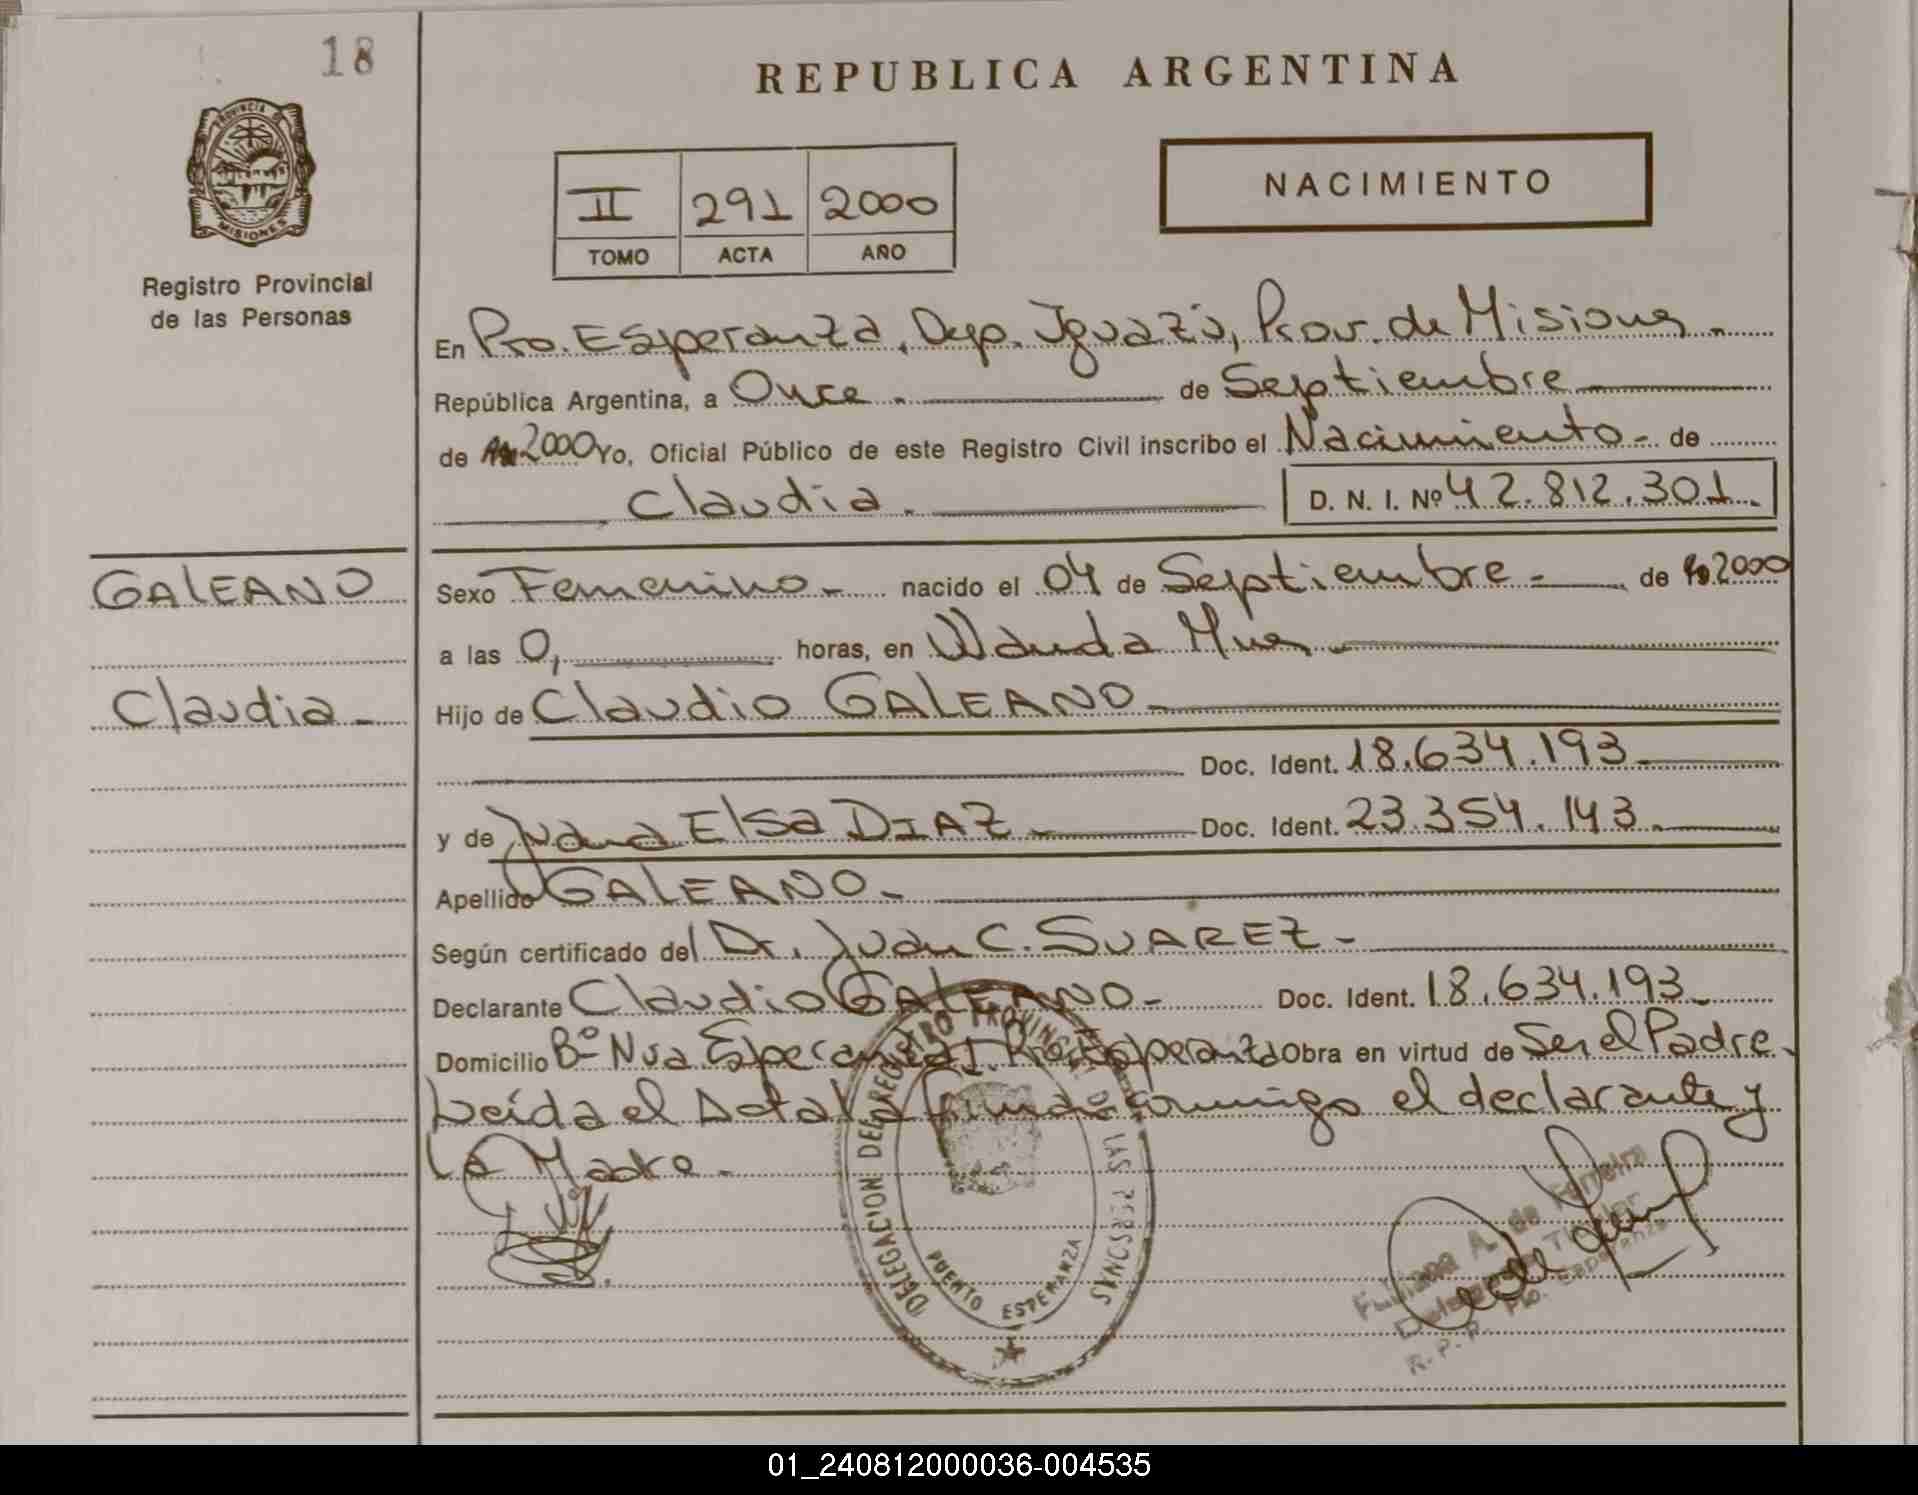 18
REPUBLICA ARGENTINA
PROVINCIA DE
MISIONES
Registro Provincial
de las Personas
II 291 2000
TOMO ACTA AÑO
NACIMIENTO
En Pto. Esperanza, Dep. Iguazú, Prov. de Misiones.
República Argentina, a Once. de Septiembre
de 2000 Yo, Oficial Público de este Registro Civil inscribo el Nacimiento - de
Claudia. D. N. I. Nº 42.812.301.
GALEANO
Claudia -
Sexo Femenino - nacido el 04 de Septiembre - de 2000
a las 0, horas, en Wanda Mnes
Hijo de Claudio GALEANO
Doc. Ident. 18.634.193
y de Juana Elsa DIAZ Doc. Ident. 23.354.143.
Apellido GALEANO -
Según certificado del Dr. Juan C. SUAREZ -
Declarante Claudio GALEANO - Doc. Ident. 18.634.193
Domicilio Bº Nva. Esperanza I. Pto. Esperanza Obra en virtud de Ser el Padre -
Leída el Acta la firman conmigo el declarante y
la Madre.
DELEGACION DEL REGISTRO PROVINCIAL DE LAS PERSONAS
PUERTO ESPERANZA
A. de Ferreira
Titular
R. P. P. Pto. Esperanza
01_240812000036-004535